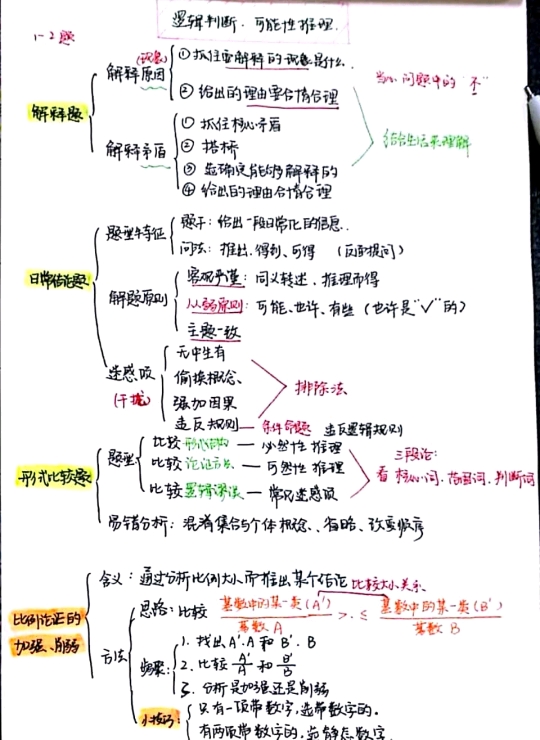 逻辑判断·可能性推理
1-2题
解释题
解释原因
(现象)
① 抓住要解释的现象是什么.
② 给出的理由要合情合理
当心问题中的"不"
解释矛盾
① 抓住核心矛盾
② 搭桥
③ 能够解释的
④ 给出的理由合情合理
结合生活来理解
日常结论题
题型特征
题干：给出一段日常化的信息.
问法：推出、得到、可得 (反面提问)
解题原则
客观严谨：同义转述、推理而得
从弱原则：可能、也许、有些 (也许是"√"的)
主题一致
迷惑项
(干扰)
无中生有
偷换概念、
强加因果
违反规则 — 条件命题 违反逻辑规则
排除法
形式比较题
题型
比较形式结构 — 必然性推理
比较论证方法 — 可然性推理
比较逻辑谬误 — 常见迷惑项
三段论：
看核心词、范围词、判断词
易错分析：混淆集合与个体概念、省略、改变顺序
比例论证的
加强、削弱
含义：通过分析比例大小而推出某个结论
比较大小关系
方法
思路：比较 基数中的某一类(A') / 基数A >、≤ 基数中的某一类(B') / 基数B
步骤：
1. 找出A'、A 和 B'、B
2. 比较 A'/A 和 B'/B
3. 分析是加强还是削弱
小技巧：
只有一项带数字，选带数字的。
有两项带数字的，